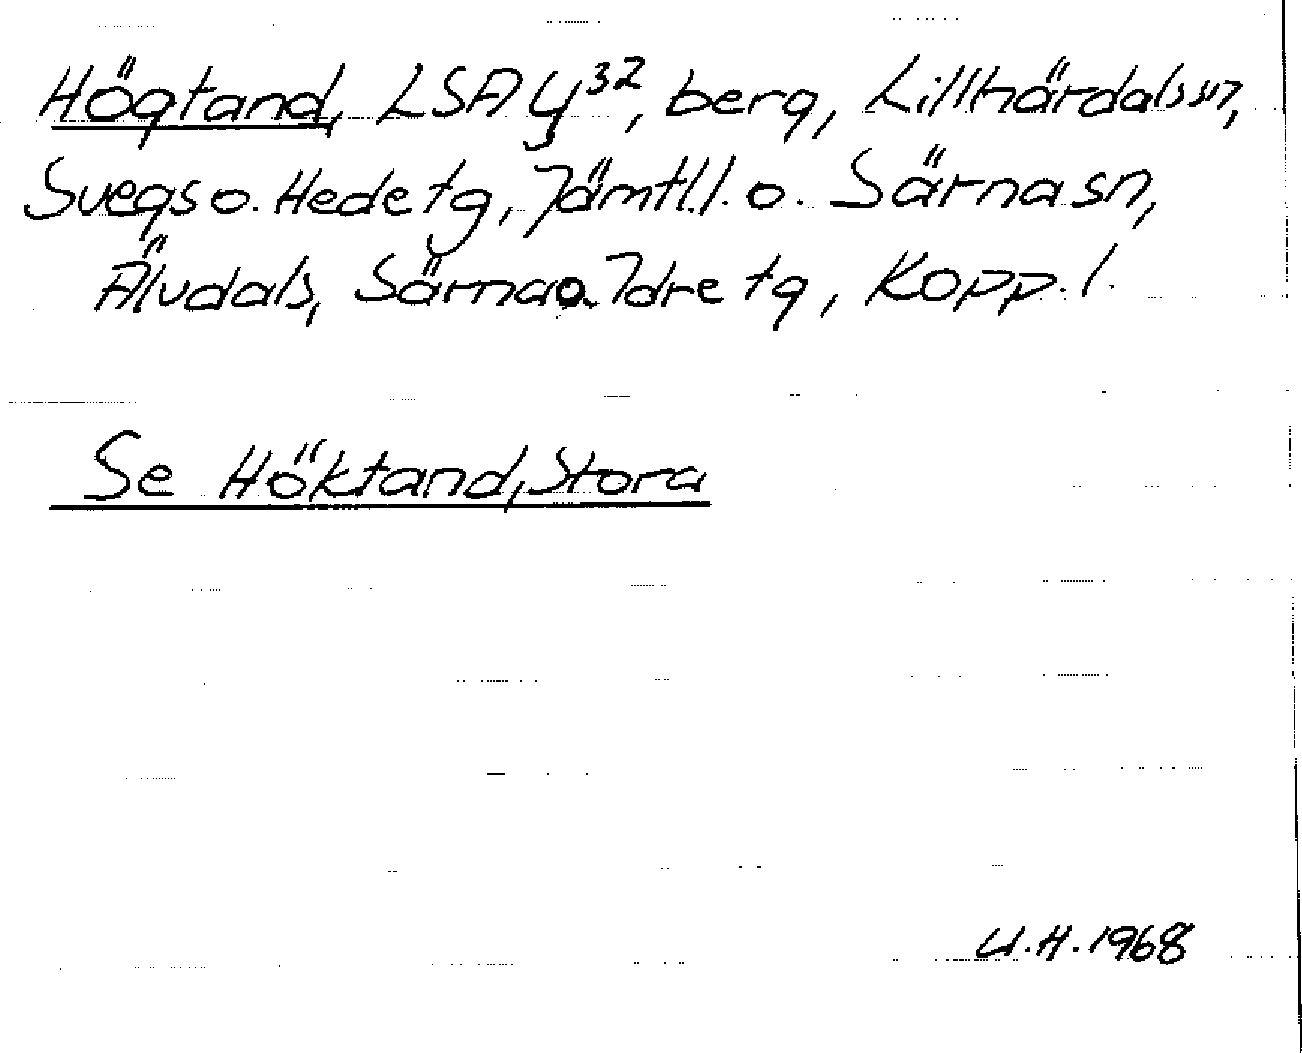 Högtand, LSA Y32, berg, Lillhärdals sn,
Svegs o. Hede tg, Jämtl. l. o. Särna sn,
Älvdals, Särna o. Idre tg, Kopp. l.
Se Höktand, Stora
U.H. 1968